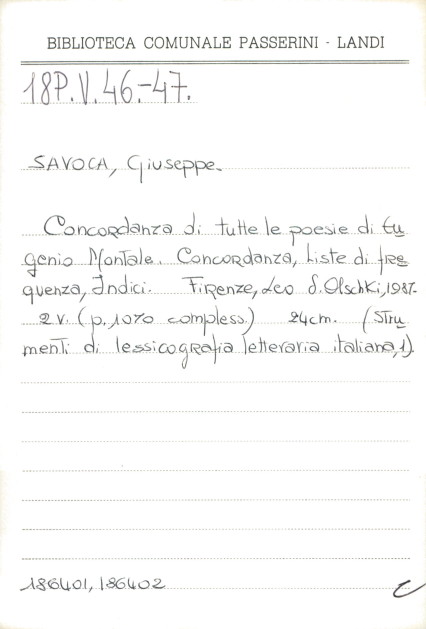 BIBLIOTECA COMUNALE PASSERINI - LANDI
18P.V.46.-47.
SAVOCA, Giuseppe.
Concordanza di tutte le poesie di Eu
genio Montale. Concordanza, Liste di fre
quenza, Indici. Firenze, Leo S. Olschki, 1987.
2 v. (p. 1070 compless.) 24cm. (Stru
menti di lessicografia letteraria italiana, 1)
186401, 186402